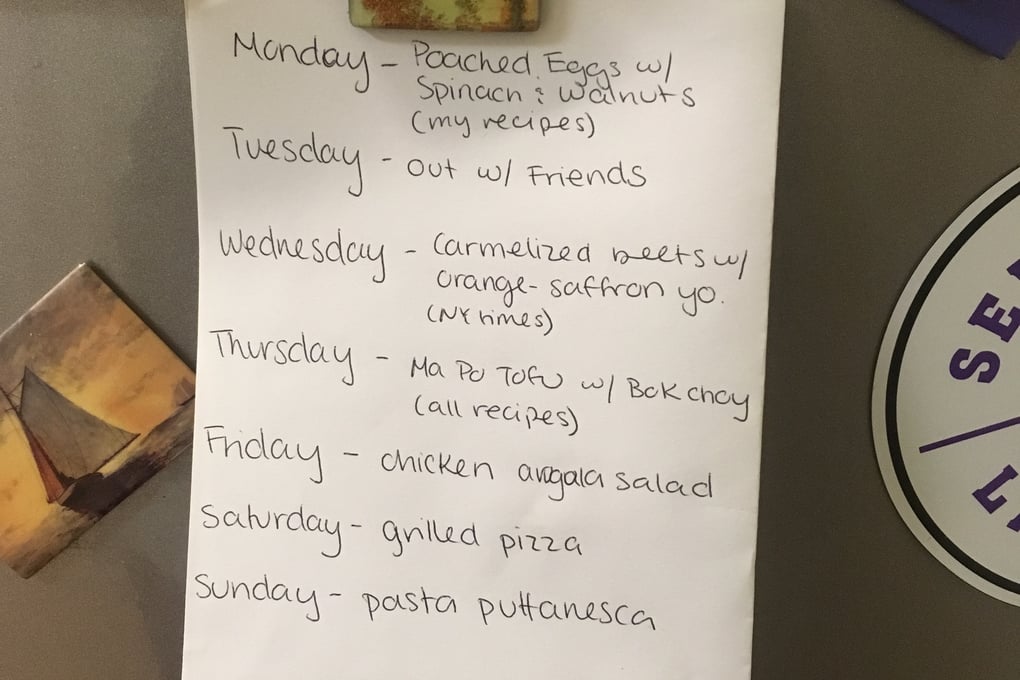 Monday - Poached Eggs w/
Spinach & Walnuts
(my recipes)
Tuesday - Out w/ Friends
Wednesday - Carmelized beets w/
Orange-saffron yo.
(NY times)
Thursday - Ma Po Tofu w/ Bok choy
(all recipes)
Friday - chicken arugala salad
Saturday - grilled pizza
Sunday - pasta puttanesca